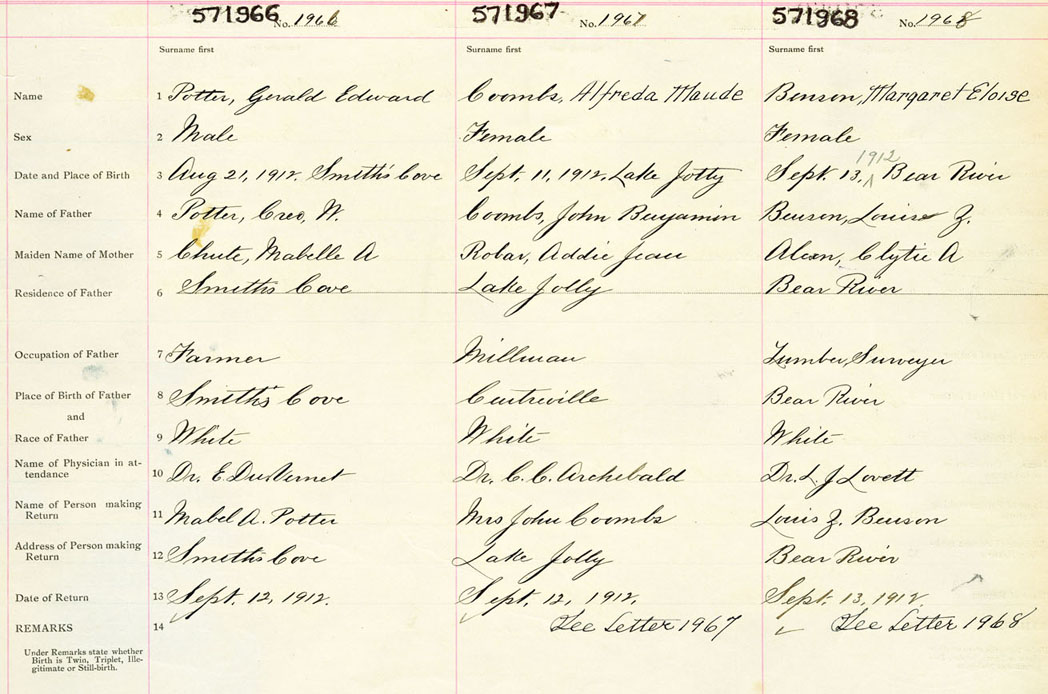 571966 No. 1966 571967 No. 1967 571968 No. 1968
Surname first Surname first Surname first
Name 1 Potter, Gerald Edward Coombs, Alfreda Maude Benson, Margaret Eloise
Sex 2 Male Female Female
1912
Date and Place of Birth 3 Aug 21, 1912. Smith's Cove Sept. 11, 1912, Lake Jolly Sept. 13, ^ Bear River
Name of Father 4 Potter, W. Coombs, John Benjamin Benson, Louis Z.
Maiden Name of Mother 5 Chute, Mabelle A Robar, Addie Jean Clytie A
Residence of Father 6 Smith's Cove Lake Jolly Bear River
Occupation of Father 7 Farmer Millman Lumber Surveyer
Place of Birth of Father 8 Smith's Cove Centreville Bear River
and
Race of Father 9 White White White
Name of Physician in at-
tendance 10 Dr. E. DuVernet Dr. C. C. Archebald Dr. L. J Lovett
Name of Person making
Return 11 Mabel A. Potter Mrs John Coombs Louis Z. Benson
Address of Person making
Return 12 Smith's Cove Lake Jolly Bear River
Date of Return 13 Sept. 12, 1912. Sept. 12, 1912. Sept. 13, 1912
REMARKS 14 See Letter 1967 See Letter 1968
Under Remarks state whether
Birth is Twin, Triplet, Ille-
gitimate or Still-birth.